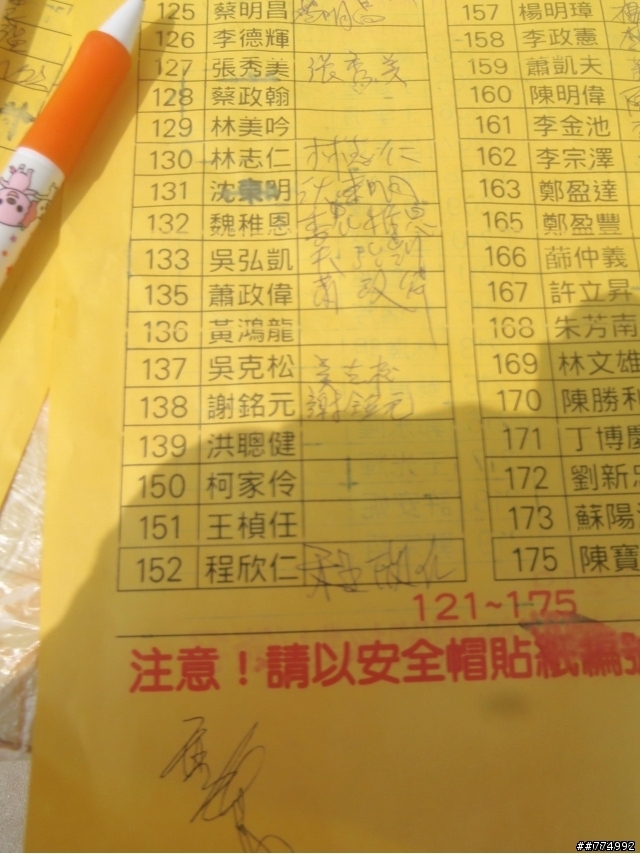 125 蔡明昌 蔡明昌 157 楊明璋
126 李德輝 158 李政憲
127 張秀美 張秀美 159 蕭凱夫
128 蔡政翰 160 陳明偉
129 林美吟 161 李金池
130 林志仁 林志仁 162 李宗澤
131 沈東明 沈東明 163 鄭盈達
132 魏稚恩 魏稚恩 165 鄭盈豐
133 吳弘凱 吳弘凱 166 薛仲義
135 蕭政偉 蕭政偉 167 許立昇
136 黃鴻龍 168 朱芳南
137 吳克松 吳克松 169 林文雄
138 謝銘元 謝銘元 170 陳勝利
139 洪聰健 171 丁博慶
150 柯家伶 172 劉新忠
151 王楨任 173 蘇陽
152 程欣仁 程欣仁 175 陳寶
121~175
注意！請以安全帽貼紙編號
##774992